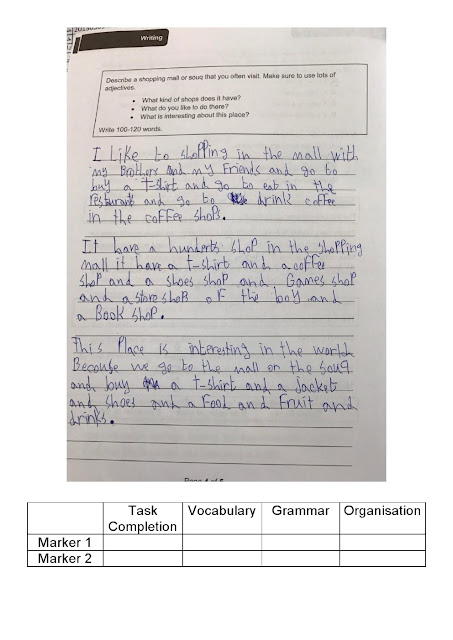 Writing
Describe a shopping mall or souq that you often visit. Make sure to use lots of
adjectives.
• What kind of shops does it have?
• What do you like to do there?
• What is interesting about this place?
Write 100-120 words.
I Like to shopping in the mall with
my Brothers and my Friends and go to
buy a T-shirt and go to eat in the
resturant and go to drink coffee
in the coffee shops.
It have a hunderts shop in the shopping
mall it have a t-shirt and a coffee
shop and a shoes shop and Games shop
and a store shop of the boy and
a Book shop.
This Place is interesting in the world
Because we go to the mall or the souq
and buy a t-shirt and a jacket
and shoes and a Food and Fruit and
drinks.
Task Completion Vocabulary Grammar Organisation
Marker 1
Marker 2